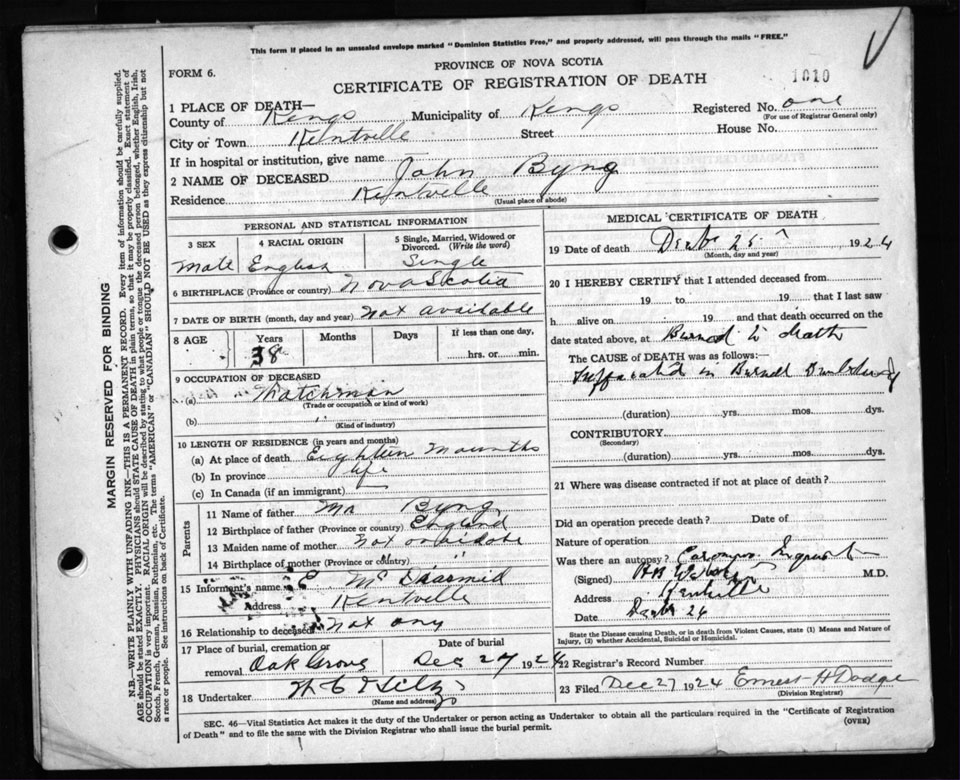 This form if placed in an unsealed envelope marked "Dominion Statistics Free," and properly addressed, will pass through the mails "FREE."
PROVINCE OF NOVA SCOTIA
FORM 6.
CERTIFICATE OF REGISTRATION OF DEATH
1010
1 PLACE OF DEATH—
County of Kings Municipality of Kings Registered No. one
(For use of Registrar General only)
City or Town Kentville Street House No.
If in hospital or institution, give name
2 NAME OF DECEASED John Byng
Residence Kentville
(Usual place of abode)
PERSONAL AND STATISTICAL INFORMATION
3 SEX
4 RACIAL ORIGIN
5 Single, Married, Widowed or Divorced. (Write the word)
Male English Single
6 BIRTHPLACE (Province or country) Nova Scotia
7 DATE OF BIRTH (month, day and year) Not available
8 AGE Years Months Days If less than one day,
38 hrs. or min.
9 OCCUPATION OF DECEASED
(a)
(Trade or occupation or kind of work)
(b) "
(Kind of industry)
10 LENGTH OF RESIDENCE (in years and months)
(a) At place of death Eighteen Mounths
(b) In province life
(c) In Canada (if an immigrant)
Parents
11 Name of father Mr Byng
12 Birthplace of father (Province or country) England
13 Maiden name of mother Not
14 Birthplace of mother (Province or country) " "
15 Informant's name E Mc Diarmid
Address Kentville
16 Relationship to deceased Not any
17 Place of burial, cremation or removal Oak Grove
Date of burial
Dec 27 1924
18 Undertaker
(Name and address)
MEDICAL CERTIFICATE OF DEATH
19 Date of death 25 1924
(Month, day and year)
20 I HEREBY CERTIFY that I attended deceased from
19 to 19 that I last saw
h alive on 19 and that death occurred on the
date stated above, at Burned to death
The CAUSE OF DEATH was as follows:
in Burned
(duration) yrs. mos. dys.
CONTRIBUTORY
(Secondary)
(duration) yrs. mos. dys.
21 Where was disease contracted if not at place of death?
Did an operation precede death? Date of
Nature of operation
Was there an autopsy?
(Signed) M.D.
Address Kentville
Date 26
State the Disease causing Death, or in death from Violent Causes, state (1) Means and Nature of
Injury, (2) whether Accidental, Suicidal or Homicidal.
22 Registrar's Record Number
23 Filed Dec 27 1924 Ernest H Dodge
(Division Registrar)
SEC. 46—Vital Statistics Act makes it the duty of the Undertaker or person acting as Undertaker to obtain all the particulars required in the "Certificate of Registration
of Death" and to file the same with the Division Registrar who shall issue the burial permit.
(OVER)
MARGIN RESERVED FOR BINDING
N.B.—WRITE PLAINLY WITH UNFADING INK—THIS IS A PERMANENT RECORD. Every item of information should be carefully supplied.
AGE should be stated EXACTLY. PHYSICIANS should STATE CAUSE OF DEATH in plain terms, so that it may be properly classified. Exact statement of
OCCUPATION is very important. RACIAL ORIGIN will be described by stating to what people or tongue the deceased person belonged, whether English, Irish,
Scotch, French, German, Russian, Ruthenian, etc. The terms "AMERICAN" or "CANADIAN" SHOULD NOT BE USED as they express citizenship but not
a race or people. See instructions on back of Certificate.